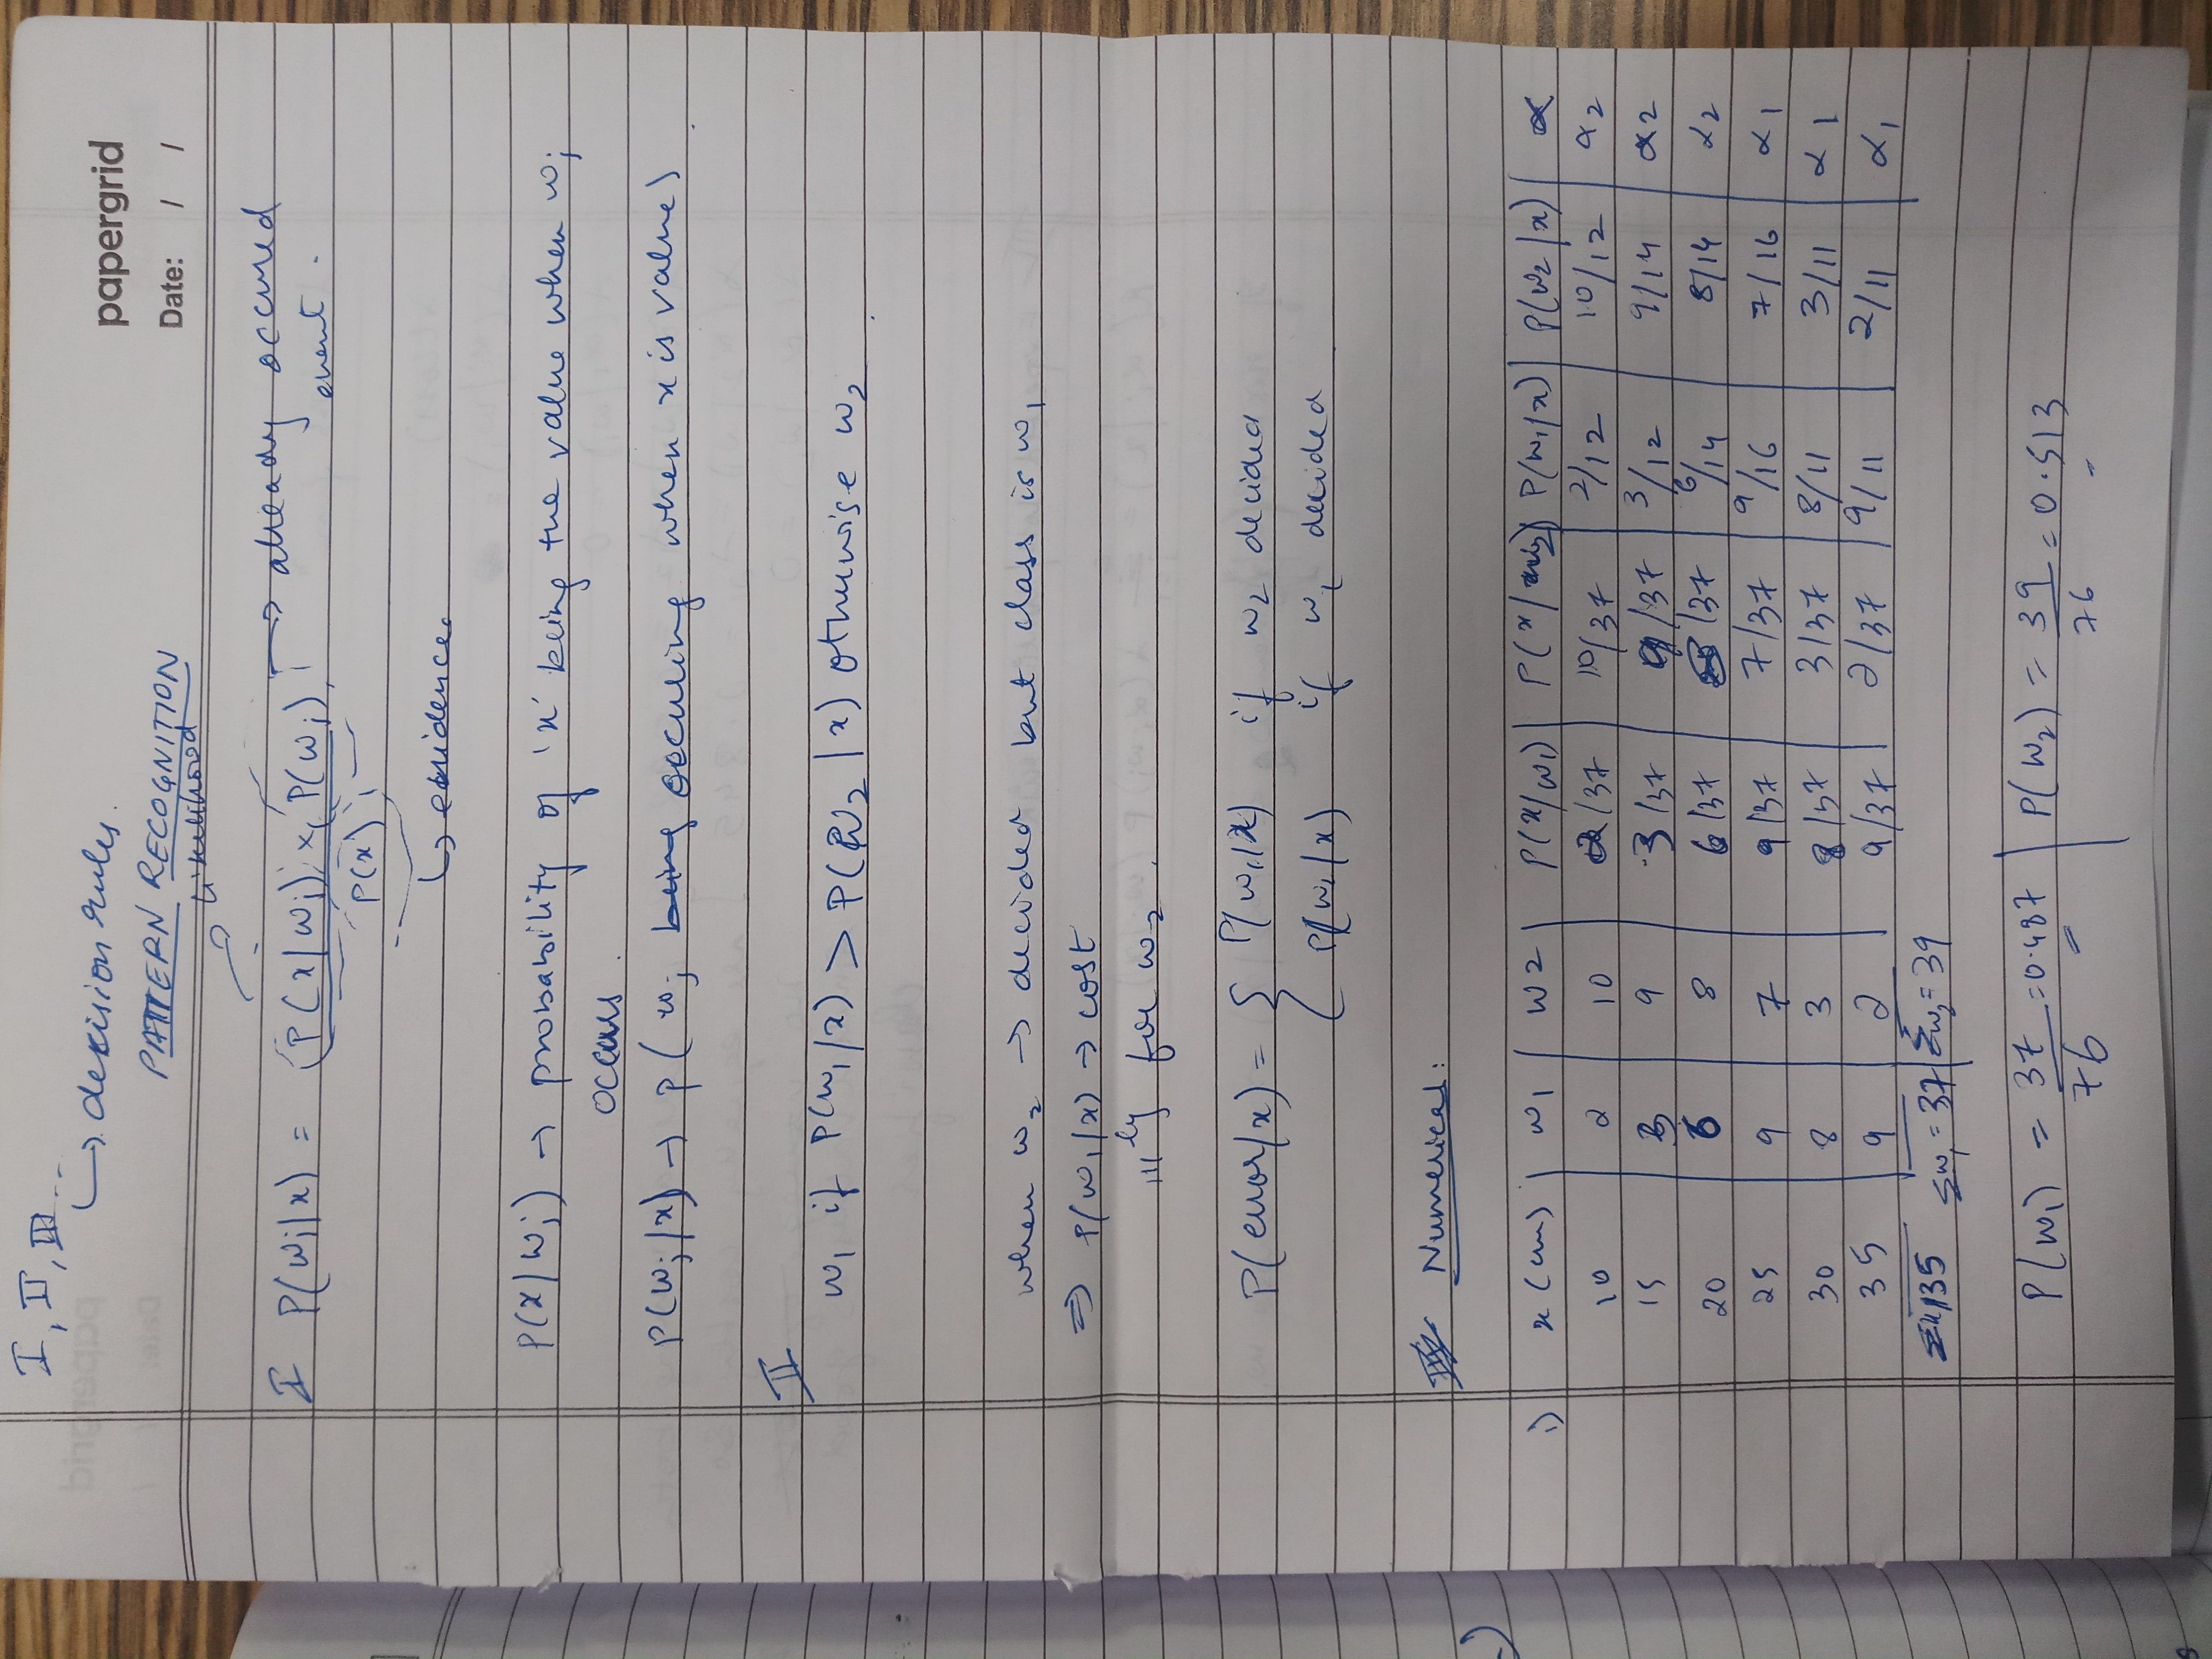 I, II, III...
↳ decision rules.
papergrid
Date: / /
PATTERN RECOGNITION
→ likelihood
I P(wj|x) = (P(x|wj) × P(wj) → already occured
event.
P(x)
↳ evidence
P(x|wj) → probability of 'x' being the value when wj
occurs.
P(wj|x) → p( wj being occuring when x is value)
II
w1 if P(w1/x) > P(w2|x) otherwise w2
when w2 → decided but class is w1
⇒ P(w1/x) → cost
|||ly for w2.
P(error/x) = { P(w1/x) if w2 decided
P(w1/x) if w1 decided
III Numerical:
i) x (cm) | w1 | w2 | P(x/w1) | P(x/w2) | P(w1/x) | P(w2|x) | α
10 2 10 2/37 10/37 2/12 10/12 α2
15 3 9 3/37 9/37 3/12 9/14 α2
20 6 8 6/37 8/37 6/14 8/14 α2
25 9 7 9/37 7/37 9/16 7/16 α1
30 8 3 8/37 3/37 8/11 3/11 α1
35 9 2 9/37 2/37 9/11 2/11 α1
135 Σw1 = 37 | Σw2 = 39
P(w1) = 37/76 = 0.487 | P(w2) = 39/76 = 0.513